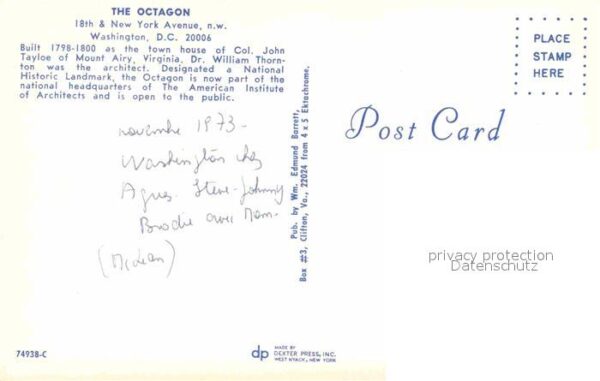 THE OCTAGON
18th & New York Avenue, n.w.
Washington, D.C. 20006
Built 1798-1800 as the town house of Col. John
Tayloe of Mount Airy, Virginia. Dr. William Thorn-
ton was the architect. Designated a National
Historic Landmark, the Octagon is now part of the
national headquarters of The American Institute
of Architects and is open to the public.
PLACE
STAMP
HERE
Post Card
novembre 1973-
Washington chez
Agnes. Steve-Johnny
Brodie avec Mam.
(McLean)
Pub. by Wm. Edmund Barrett,
Box #3, Clifton, Va., 22024 from 4 x 5 Ektachrome.
privacy protection
Datenschutz
74938-C
dp
MADE BY
DEXTER PRESS, INC.
WEST NYACK, NEW YORK